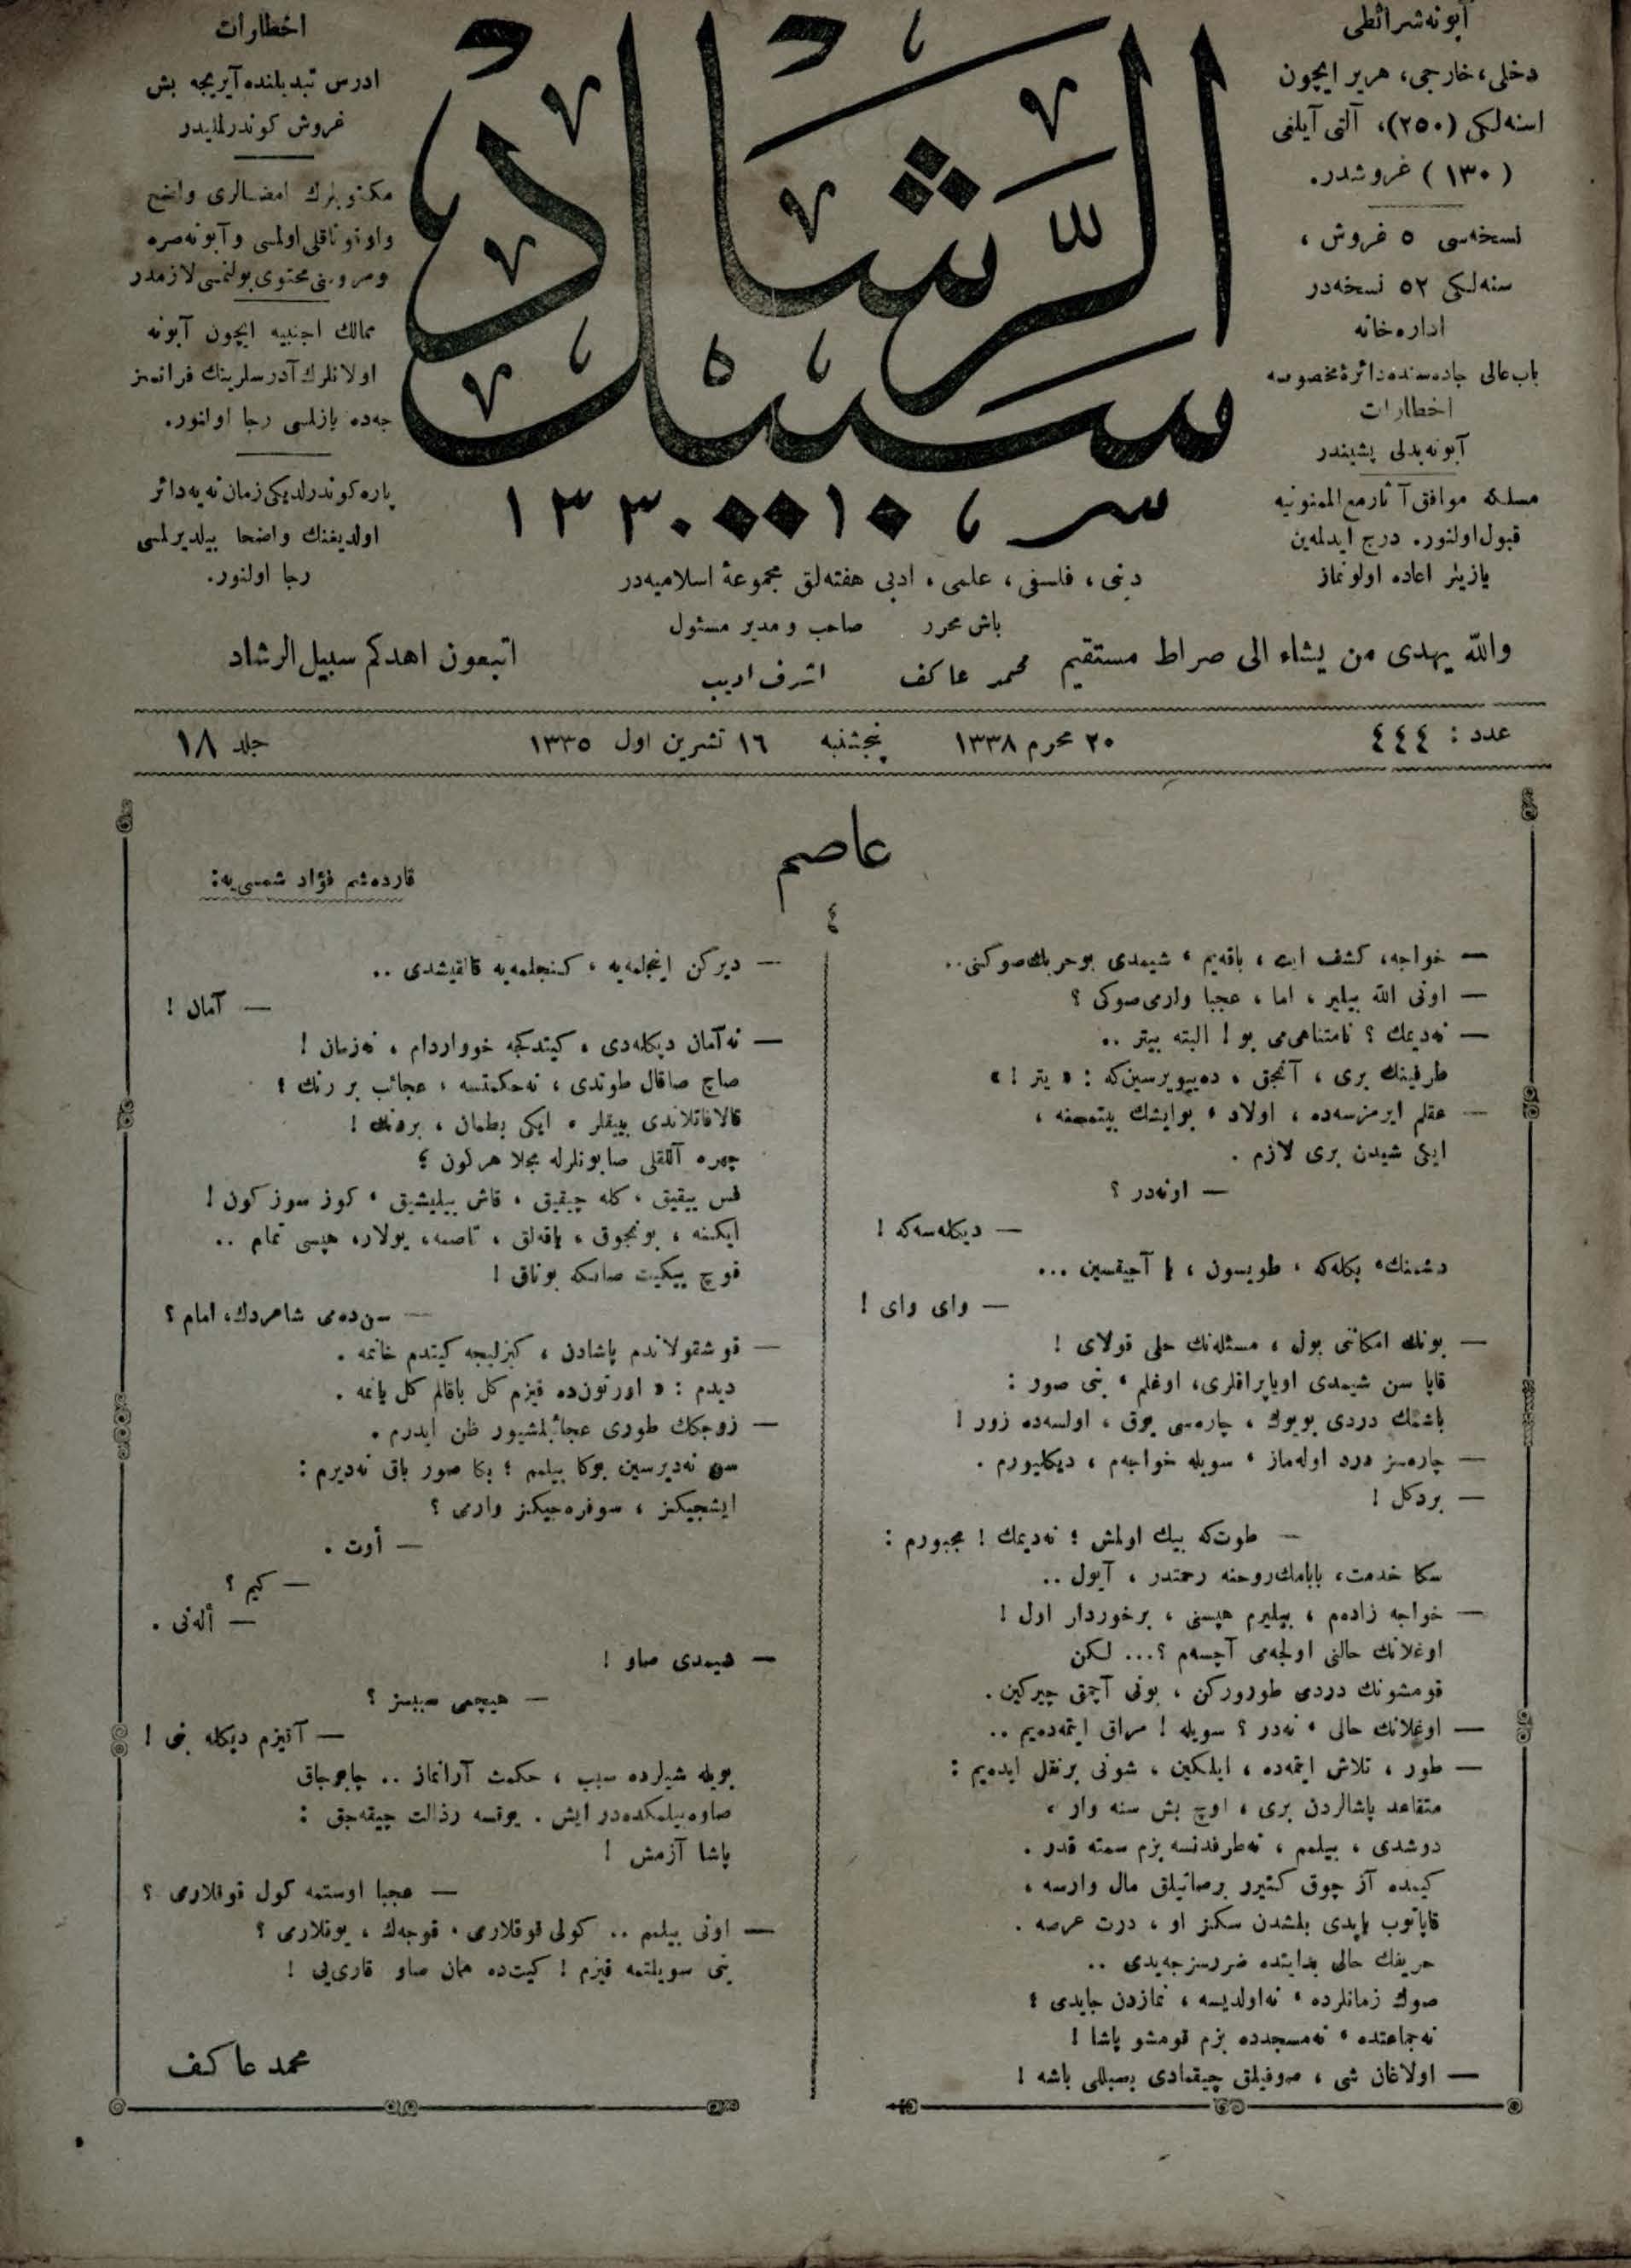 آبونه شرائطی
دخلی، خارجی، هر یر ایچون
سنه‌لکی (٢٥٠)، آلتی آیلغی
(١٣٠) غروشدر.
نسخه‌سی ٥ غروش،
سنه‌لکی ٥٢ نسخه‌در
اداره‌خانه
باب عالی جاده‌سنده دائرۀ مخصوصه
اخطارات
آبونه بدلی پشیندر
مسلکه موافق آثار مع الممنونیه
قبول اولنور. درج ایدلمه‌ین
یازیلر اعاده اولونماز
سبیل الرشاد
سر ١٠ ١٣٣٠
اخطارات
ادرس تبدیلنده آیریجه بش
غروش کوندرلملیدر
مکتوبلرك امضالری واضح
واوقوناقلی اولمسی وآبونه صره
ومروسنی محتوی بولنمسی لازمدر
ممالك اجنبیه ایچون آبونه
اولانلرك آدرسلرینك فرانسز
جه‌ده یازلمسی رجا اولنور.
پاره کوندرلدیکی زمان نه‌یه دائر
اولدیغنك واضحا بیلدیرلمسی
رجا اولنور.
دینی، فلسفی، علمی، ادبی هفته‌لق مجموعۀ اسلامیه‌در
باش محرر صاحب و مدیر مسئول
والله یهدی من یشاء الی صراط مستقیم محمد عاکف اشرف ادیب اتبعون اهدکم سبیل الرشاد
عدد : ٤٤٤ ٢٠ محرم ١٣٣٨ پنجشنبه ١٦ تشرین اول ١٣٣٥ جلد ١٨
عاصم
قارده‌شم فؤاد شمسی‌یه:
٤
— خواجه، کشف ایت، باقه‌یم، شیمدی بو حربك صوکنی..
— اونی الله بیلیر، اما، عجبا وارمی صوکی ؟
— نه‌دیمك ؟ نامتناهی‌می بو ! البته بیتر ..
طرفینك بری، آنجق، ده‌ییویرسین‌که : « یتر ! »
— عقلم ایرمزسه‌ده، اولاد، بو ایشك بیتمه‌سنه،
ایکی شیدن بری لازم .
— اونه‌در ؟
— دیکله‌سه‌که !
دشمنك، بکله‌که، طویسون، یا آجیقسین ...
— وای وای !
— بونك امکاننی بول، مسئله‌نك حلی قولای !
قاپا سن شیمدی اویاپراقلری، اوغلم، بنی صور :
باشمك دردی بویوك، چاره‌سی یوق، اولسه‌ده زور !
— چاره‌سز درد اوله‌ماز، سویله خواجه‌م، دیکلیورم .
— بر دکل !
— طوت‌که بیك اولمش ؛ نه‌دیمك ! مجبورم :
سکا خدمت، بابامك روحنه رحمتدر، آیول ..
— خواجه زاده‌م، بیلیرم هپسنی، برخوردار اول !
اوغلانك حالنی اولجه‌می آچسه‌م ؟... لکن
قومشونك دردی طورورکن، بونی آچمق چیرکین.
— اوغلانك حالی، نه‌در ؟ سویله ! مراق ایتمه‌ده‌یم ..
— طور، تلاش ایتمه‌ده، ایلکین، شونی بر نقل ایده‌یم :
متقاعد پاشالردن بری، اوچ بش سنه وار،
دوشدی، بیلمم، نه‌طرفدنسه بزم سمته قدر .
کیمده آز چوق کتیرر بر صاتیلق مال وارسه،
قاپاتوب یاپدی بلمشدن سکز او، درت عرصه .
حریفك حالی بدایتده ضررسزجه‌یدی ..
صوك زمانلرده، نه‌اولدیسه، نمازدن جایدی ؛
نه‌جماعتده، نه‌مسجدده بزم قومشو پاشا !
— اولاغان شی، صوفیلق چیقمادی بسبللی باشه !
— دیرکن اینجلمه‌یه، کنجلمه‌یه قالقیشدی ..
— آمان !
— نه‌آمان دیکله‌دی، کیتدکجه خوواردام، نه‌زمان !
صاچ صاقال طوتدی، نه‌حکمتسه، عجائب بر رنك ؛
قالافاتلاندی بییقلر، ایکی بطمان، بردنك !
چهره آللقلی صابونلرله مجلا هرکون ؛
فس ییقیق، کله چیقیق، قاش بیلیشیق، کوز سوزکون !
ایکینه، بونجوق، یاقه‌لق، تاصمه، یولار، هپسی تمام ..
قوچ ییکیت صانکه بوناق !
— سن‌ده‌می شاهردك، امام ؟
— قوشقولاندم پاشادن، کیزلیجه کیتدم خانمه .
دیدم : « اورتون‌ده قیزم کل باقالم کل یانمه .
— زوجکك طوری عجائبلشیور ظن ایدرم .
سن نه‌دیرسین بوکا بیلمم ؛ بکا صور باق نه‌دیرم :
ایشجیکز، سوفره‌جیکز وارمی ؟
— أوت .
— کیم ؟
— ألنی .
— شیمدی صاو !
— هیچمی سببسز ؟
— آقیزم دیکله بنی !
بویله شیلرده سبب، حکمت آرانماز .. چاپوجاق
صاوه‌بیلمکده‌در ایش . یوقسه رذالت چیقه‌جق :
پاشا آزمش !
— عجبا اوستمه کول قوقلارمی ؟
— اونی بیلمم .. کولی قوقلارمی، قوجه‌ك، یوقلارمی ؟
بنی سویلتمه قیزم ! کیت‌ده همان صاو قاری‌یی !
محمد عاکف